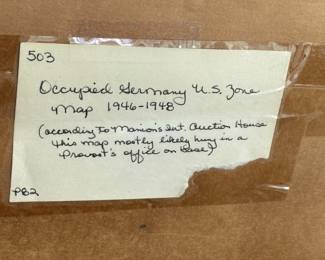 503
Occupied Germany U.S. Zone
Map 1946-1948
(according to Manion's Int. Auction House
this map mostly likely hung in a
Provost's office on Base)
PB2